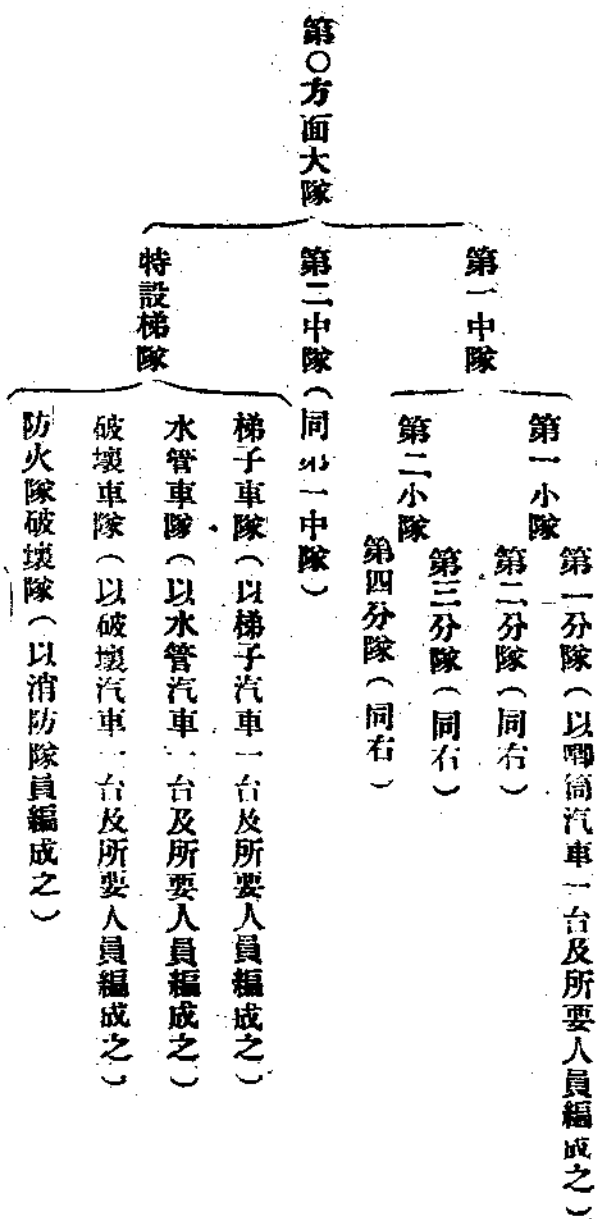 第〇方面大隊
第一中隊
第一小隊
第一分隊（以喞筒汽車一台及所要人員編成之）
第二分隊（同右）
第二小隊
第三分隊（同右）
第四分隊（同右）
第二中隊（同第一中隊）
特設梯隊
梯子車隊（以梯子汽車一台及所要人員編成之）
水管車隊（以水管汽車一台及所要人員編成之）
破壞車隊（以破壞汽車一台及所要人員編成之）
防火隊破壞隊（以消防隊員編成之）